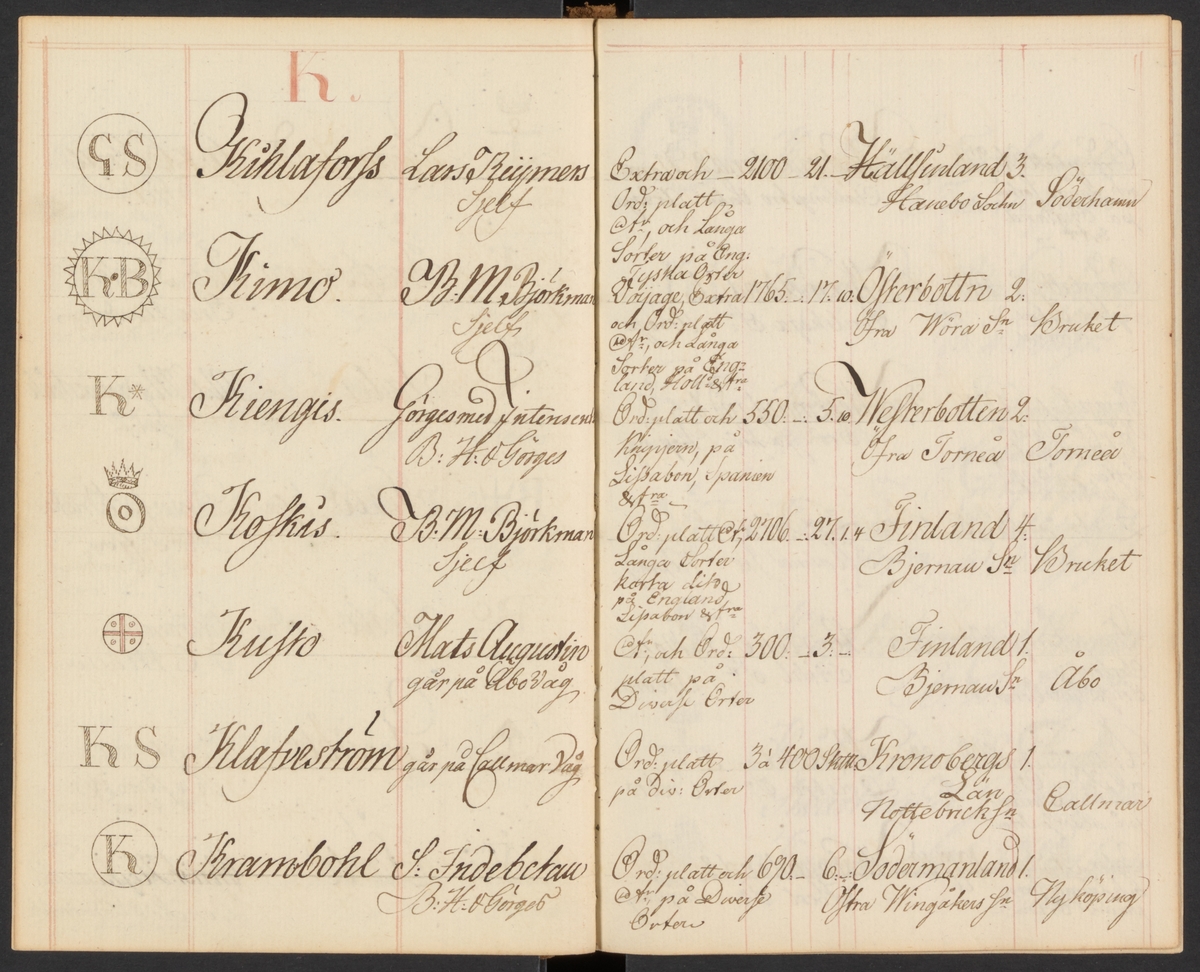 K.
GS Kihlaforss Lars Reijmers Extra och – 2100 – 21. – Hällsinland 3.
Sjelf Ord: platt Hanebo Sochn Söderhamn
och Långa
Sorter på Eng:
Tyska Orter
K·B Kimo. B: M: Björkman Voijage, Extra 1765. –. 17. 10. Österbottn 2:
Sjelf och Ord: platt Öfra Wöra Sn Bruket
och Långa
Sorter på Eng-
land, Holl: &tra
K* Kiengis. Görges med Intensent Ord: platt och 550. –. 5. 10 Westerbotten 2:
B: H: & Görges Knipjern, på Öfra Torneå Torneå
Lissabon, Spanien
&tra
O Koskis. B: M: Björkman Ord: platt Ctr, 2706. –. 27. 1. 4 Finland 4:
Sjelf Långa Sorter Bjernau Sn Bruket
korta dito
på England
Lissabon &tra
Kusto Mats Augustin Ctr, och Ord: 300. – 3. – Finland 1.
går på Åbo Våg platt på Bjernau Sn Åbo
Diverse Orter
K S Klafveström går på Callmar Våg Ord: platt 3 à 400 Skttl: Kronobergs 1.
på Div: Orter Län
Nottebrick Sn Callmar
K Krambohl S: Indebetau Ord: platt och 690 – 6. –. Södermanland 1.
B: H: & Görges Ctr, på Diverse Östra Wingåkers Sn Nyköping
Orter